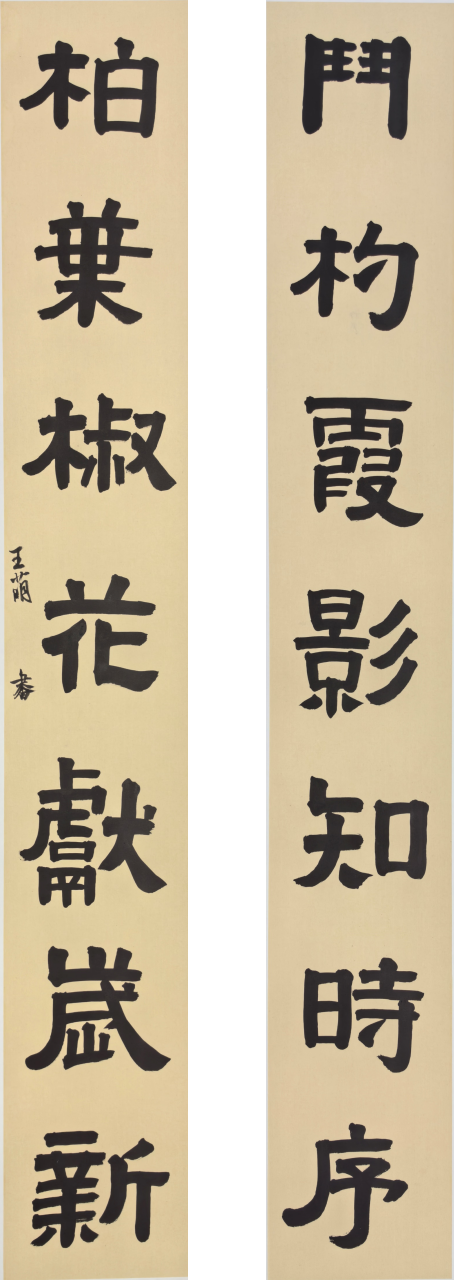 鬥杓霞影知時序
柏葉椒花獻歲新
王萌 書